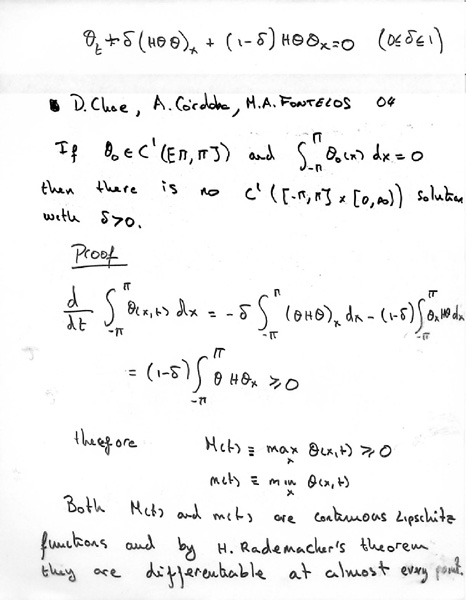 θ_t + δ(Hθ θ)_x + (1-δ) Hθ θ_x = 0 (0≤δ≤1)
D. Chae, A. Córdoba, M.A. FONTELOS 04
If θ_0 ∈ C^1([-π,π]) and ∫_{-π}^{π} θ_0(x) dx = 0
then there is no C^1([-π,π] × [0,∞)) solution
with δ>0.
Proof
d/dt ∫_{-π}^{π} θ(x,t) dx = -δ ∫_{-π}^{π} (θHθ)_x dx - (1-δ) ∫_{-π}^{π} θ_x Hθ dx
= (1-δ) ∫_{-π}^{π} θ Hθ_x ≥ 0
therefore M(t) ≡ max_x θ(x,t) ≥ 0
m(t) ≡ min_x θ(x,t)
Both M(t) and m(t) are continuous Lipschitz
functions and by H. Rademacher's theorem
they are differentiable at almost every point.